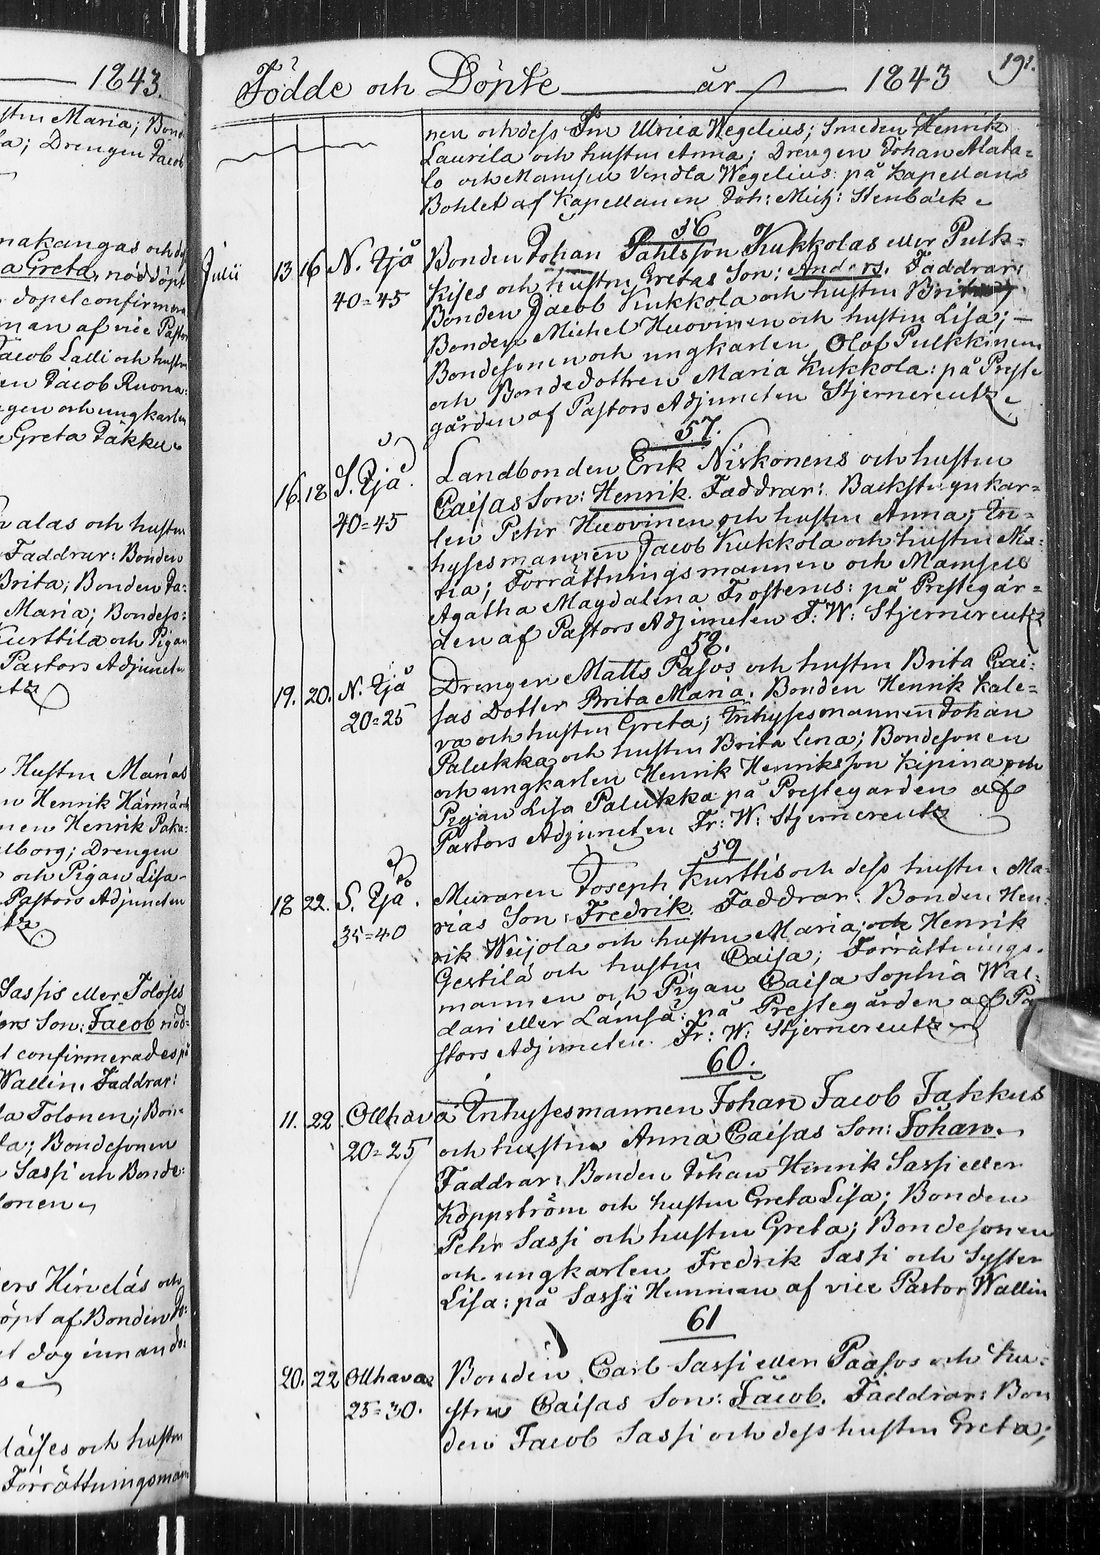 1843.
stun Maria; Bond
a; Drengen Jacob
nakangas och
a Greta, nöddöpt
dopet confirmera
man af vice Past
Jacob Lalli och hust
en Jacob Ruona
gen och ungkarlen
Greta Jäkku
alas och hustru
Faddrar: Bonden
Brita; Bonden Ja-
Maria; Bondeso-
Kurttila och Pigan
Pastors Adjuncten
Hustru Marias
Henrik Härmä
men Henrik Paka-
lborg; Drengen
och Pigan Lisa
Pastors Adjuncten
Sassis eller Tolojes
Son: Jacob nöd-
t confirmerades på
Wallin. Faddrar:
la Tolonen; Bon-
la; Bondesonen
Sassi och Bonde-
lonen
ers Hirveläs och
öpt af Bonden
t dog innan
och hustru
Förrättningsman
Födde och Döpte år 1843 191.
nen och dess Fru Ulrica Wegelius; Smeden Henrik
Laurila och hustru Anna; Drengen Johan Alata-
lo och Mamsell Vendla Wegelius: på Kapellans
Bohlet af Kapellanen Joh: Mich: Stenbäck
56
Julii 13 16 N. Ijå Bonden Johan Påhlsson Kukkolas eller Pulk-
40=45 kises och hustru Gretas Son: Anders. Faddrar:
Bonden Jacob Kukkola och hustru Brita;
Bonden Michel Huovinen och hustru Lisa;
Bondesonen och ungkarlen Olof Pulkkinen
och Bondedottren Maria Kukkola: på Preste
gården af Pastors Adjuncten Stjernereutz
57.
16. 18 S. Ijå. Landbonden Erik Niskonens och hustru
40=45 Caisas Son: Henrik. Faddrar: Backstugukar-
len Pehr Huovinen och hustru Anna; In-
hysesmannen Jacob Kukkola och hustru Ma-
ria; Förrättningsmannen och Mamsell
Agatha Magdalena Frosterus: på Prestegår-
den af Pastors Adjuncten F: W: Stjernereutz
58.
19. 20. N. Ijå Drengen Matts Pasos och hustru Brita Cai-
20=25 sas Dotter Brita Maria. Bonden Henrik Kale-
va och hustru Greta; Inhysesmannen Johan
Palukka och hustru Brita Lena; Bondesonen
och ungkarlen Henrik Henriksson Kipina och
Pigan Lisa Palukka på Prestegården af
Pastors Adjuncten Fr: W: Stjernereutz
59
18 22. S. Ijå. Muraren Joseph Kurttis och dess hustru Ma-
35=40 rias Son: Fredrik. Faddrar: Bonden Hen-
rik Weijola och hustru Maria; och Henrik
Gestilä och hustru Caisa; Förrättnings-
mannen och Pigan Caisa Sophia Wal-
dari eller Lamsa: på Prestegården af Pa-
stors Adjuncten. Fr: W: Stjernereutz
60.
11. 22. Ollhava Inhysesmannen Johan Jacob Jakkus
20=25 och hustru Anna Caisas Son: Johan.
Faddrar: Bonden Johan Henrik Sassi eller
Köppström och hustru Greta Lisa; Bonden
Pehr Sassi och hustru Greta; Bondesonen
och ungkarlen Fredrik Sassi och Syster
Lisa: på Sassi Hemman af vice Pastor Wallin
61
20. 22 Ollhava Bonden Carl Sassi eller Paasos och hu-
25=30. stru Caisas Son: Jacob. Faddrar: Bon
den Jacob Sassi och dess hustru Greta;